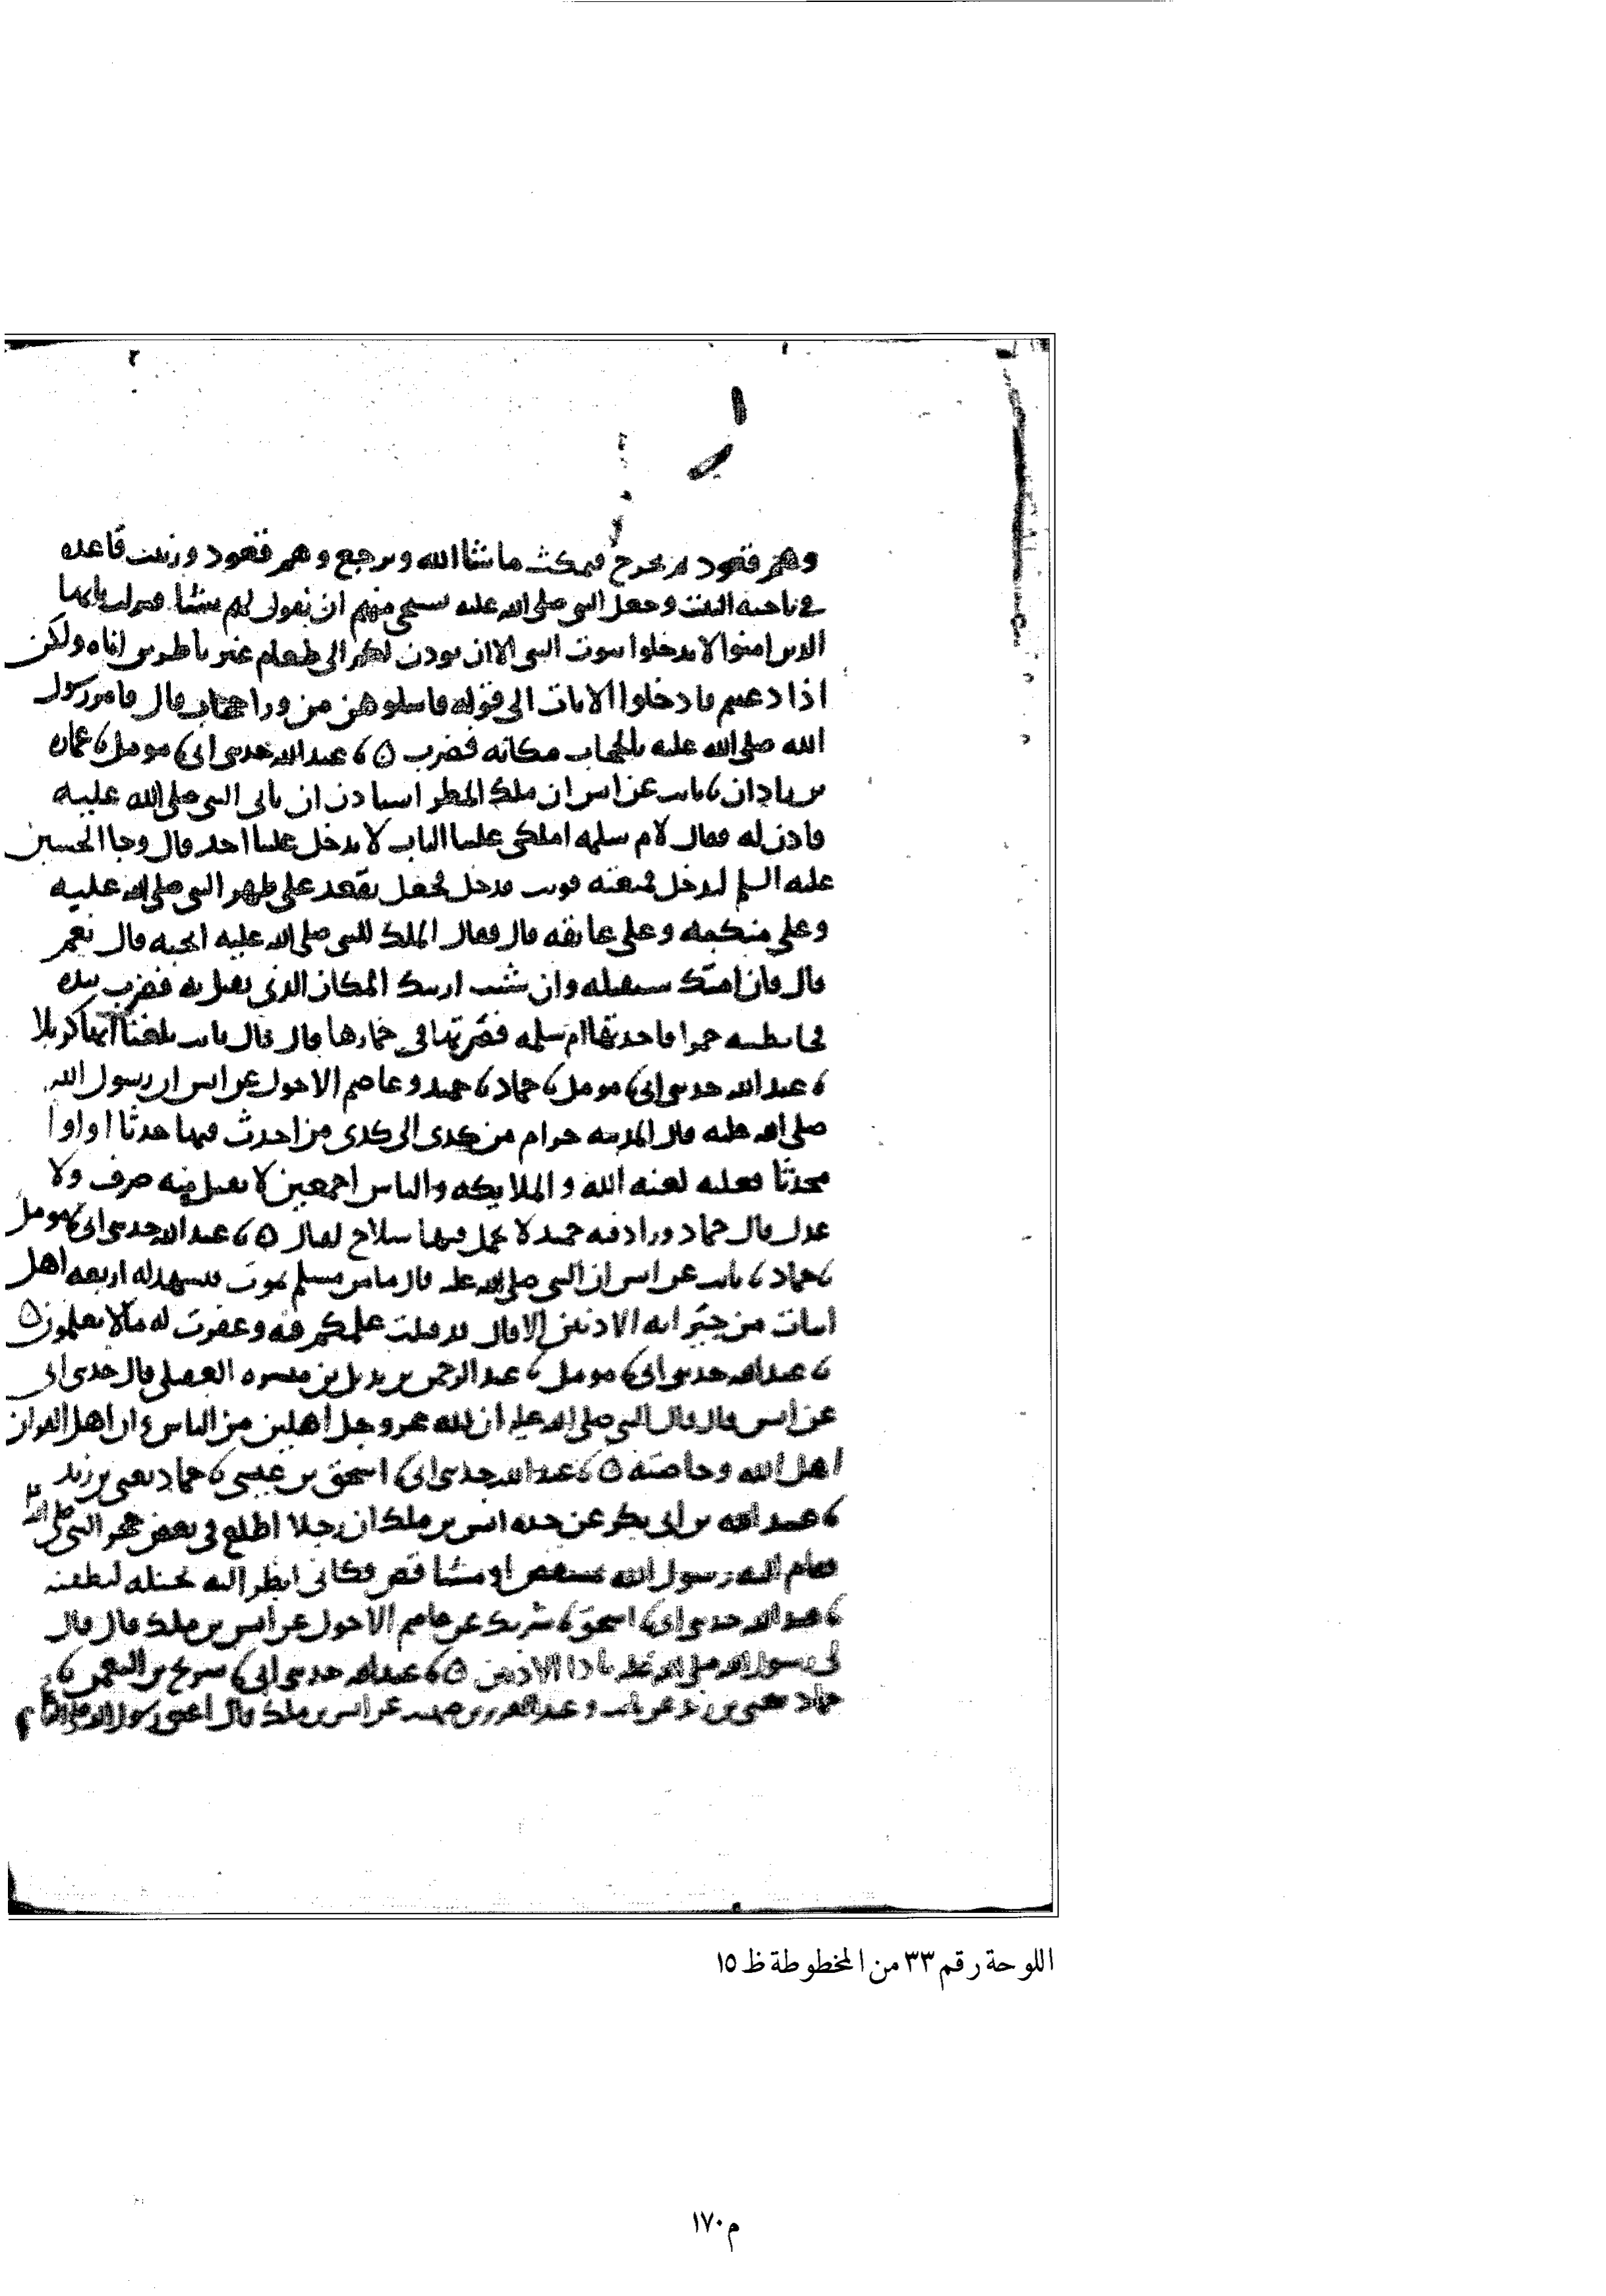 وهم قعود ثم يخرج فيمكث ما شا الله ويرجع وهم قعود وزينب قاعده
في ناحيه البيت وجعل النبي صلى الله عليه يستحي منهم ان يقول لهم شيئا فنزلت يايها
الذين امنوا لا تدخلوا بيوت النبي الا ان يوذن لكم الى طعام غير ناظرين اناه ولكن
اذا دعيتم فادخلوا الايات الى قوله فاسلوهن من ورا حجاب قال فامر رسول
الله صلى الله عليه بالحجاب مكانه فضرب ه ثنا عبد الله حدثني ابي ثنا مومل ثنا عماره
بن زاذان ثنا ثابت عن انس ان ملك المطر استاذن ان ياتي النبي صلى الله عليه
فاذن له فقال لام سلمه املكي علينا الباب لا يدخل علينا احد قال وجا الحسين
عليه السلم ليدخل فمنعته فوثب فدخل فجعل يقعد على ظهر النبي صلى الله عليه
وعلى منكبه وعلى عاتقه قال فقال الملك للنبي صلى الله عليه اتحبه قال نعم
قال فان امتك ستقتله وان شئت اريتك المكان الذي يقتل به فضرب بيده
فجا بطينه حمرا فاخذتها ام سلمه فصرتها في خمارها قال قال ثابت بلغنا انها كربلا
ثنا عبد الله حدثني ابي ثنا مومل ثنا حماد ثنا حميد وعاصم الاحول عن انس ان رسول الله
صلى الله عليه قال المدينه حرام من كدى الى كدى من احدث فيها حدثا او اوا
محدثا فعليه لعنه الله والملايكه والناس اجمعين لا يقبل منه صرف ولا
عدل قال حماد وزاد فيه حميد لا يحمل فيها سلاح لقتال ه ثنا عبد الله حدثني ابي ثنا مومل
ثنا حماد ثنا ثابت عن انس ان النبي صلى الله عليه قال ما من مسلم يموت فيشهد له اربعه اهل
ابيات من جيرانه الادنين الا قال قد قبلت علمكم فيه وغفرت له ما لا تعلمون ه
ثنا عبد الله حدثني ابي ثنا مومل ثنا عبد الرحمن بن بديل بن ميسره العقيلي قال حدثني ابي
عن انس قال قال النبي صلى الله عليه ان لله عز وجل اهلين من الناس وان اهل القران
اهل الله وخاصته ه ثنا عبد الله حدثني ابي ثنا اسحق بن عيسى ثنا حماد يعني بن زيد
ثنا عبيد الله بن ابي بكر عن جده انس بن ملك ان رجلا اطلع في بعض حجر النبي صلى الله
فقام اليه رسول الله بمشقص او مشاقص فكاني انظر اليه يختله ليطعنه
ثنا عبد الله حدثني ابي ثنا اسحق ثنا شريك عن عاصم الاحول عن انس بن ملك قال قال
لي رسول الله صلى الله عليه يا ذا الاذنين ه ثنا عبد الله حدثني ابي ثنا سريج بن النعمن ثنا
حماد يعني بن زيد عن ثابت وعبد العزيز بن صهيب عن انس بن ملك قال اعتق رسول الله صلى الله
اللوحة رقم ٣٣ من المخطوطة ظ ١٥
م١٧٠